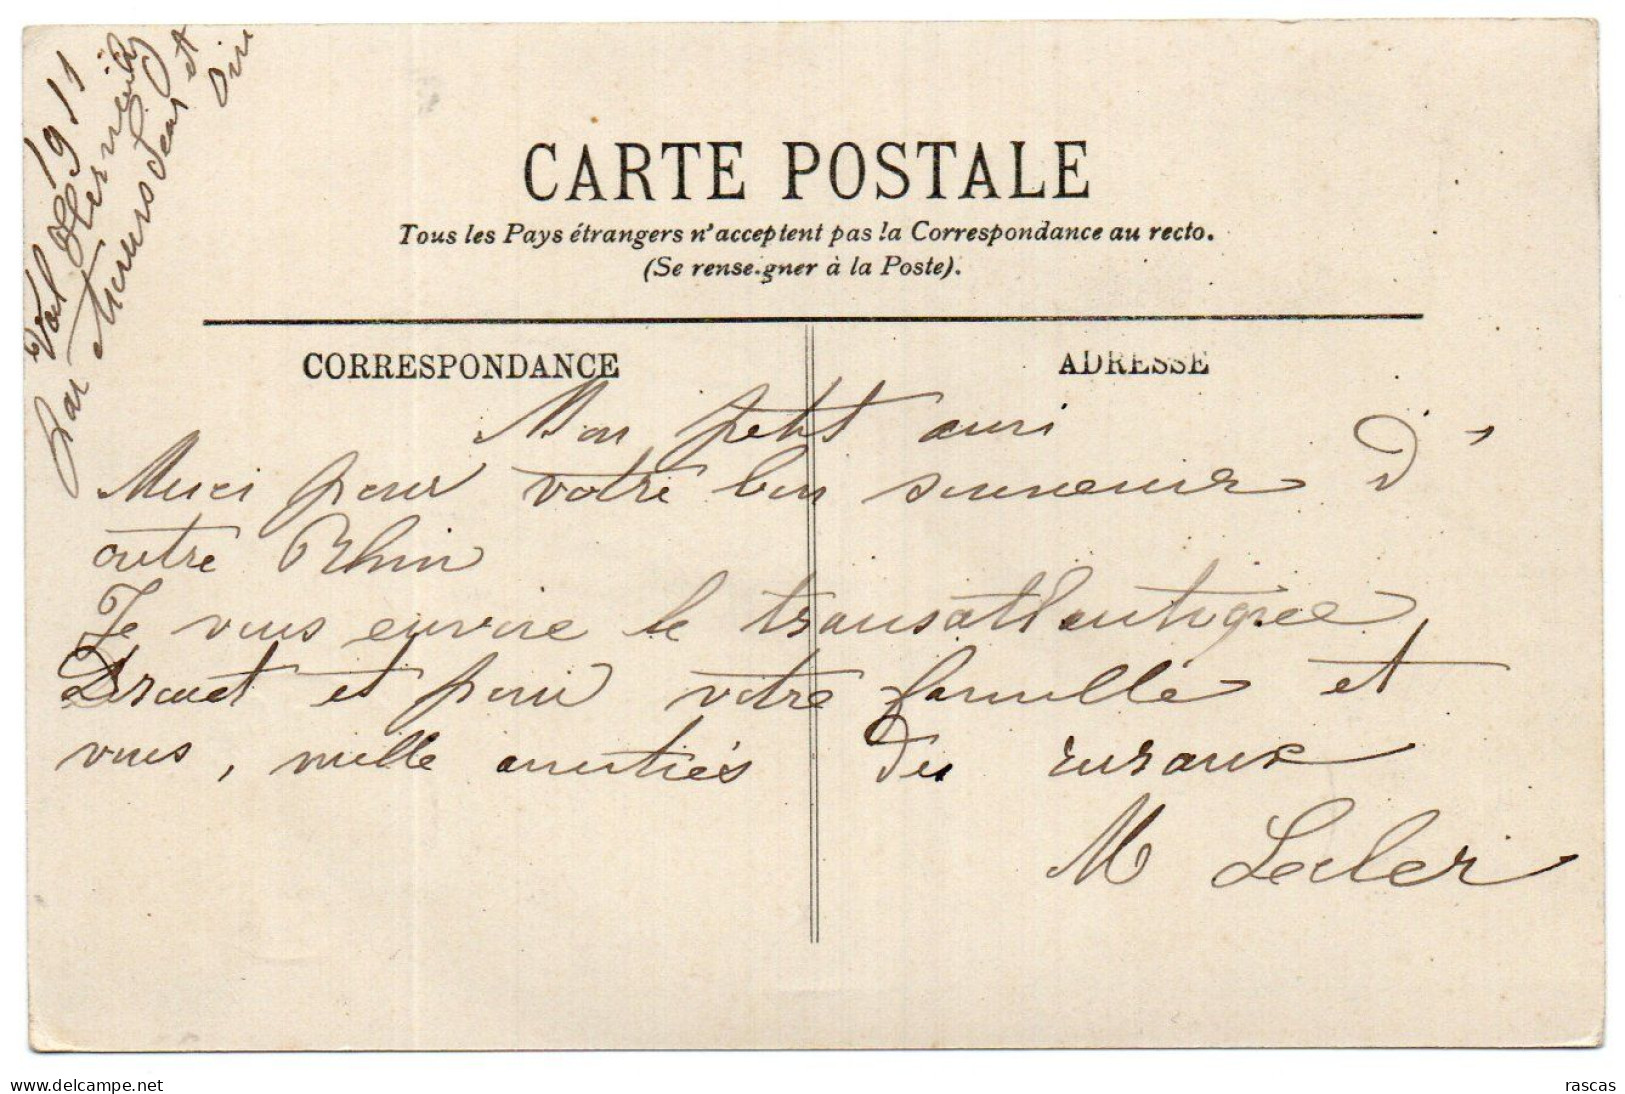 Val Hermeil 1911
par
et
CARTE POSTALE
Tous les Pays étrangers n'acceptent pas la Correspondance au recto.
(Se renseigner à la Poste).
CORRESPONDANCE
ADRESSE
Mon petit ami
Merci pour votre bon souvenir d'
outre Rhin
Je vous envoie le transatlantique
Drouet et pour votre famille et
vous, mille amitiés des ruraux
M Lecler
rascas